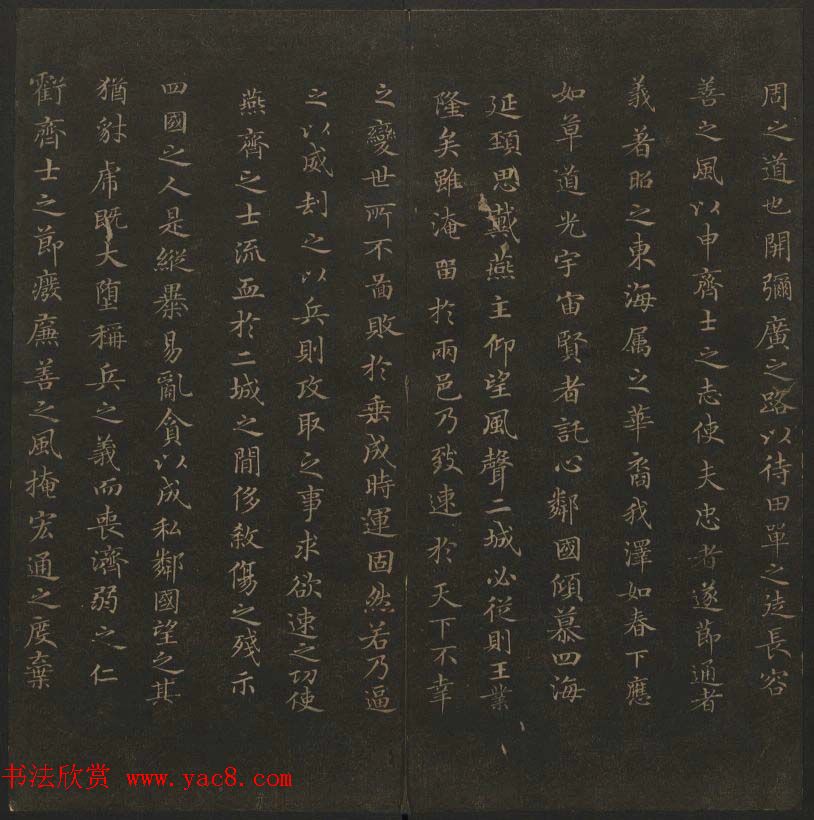 周之道也開彌廣之路以待田單之徒長容
善之風以申齊士之志使夫忠者遂節通者
義著昭之東海属之華裔我澤如春下應
如草道光宇宙賢者託心鄰國傾慕四海
延頚思戴燕主仰望風聲二城必從則王業
隆矣雖淹留於兩邑乃致速於天下不幸
之變世所不啚敗於垂成時運固然若乃逼
之以威刼之以兵則攻取之事求欲速之功使
燕齊之士流血於二城之間侈敘傷之殘示
四國之人是縱㬥易亂貪以成私鄰國望之其
猶豺虎既大堕稱兵之義而喪濟弱之仁
虧齊士之節癈廉善之風掩宏通之度棄
书法欣赏 www.yac8.com